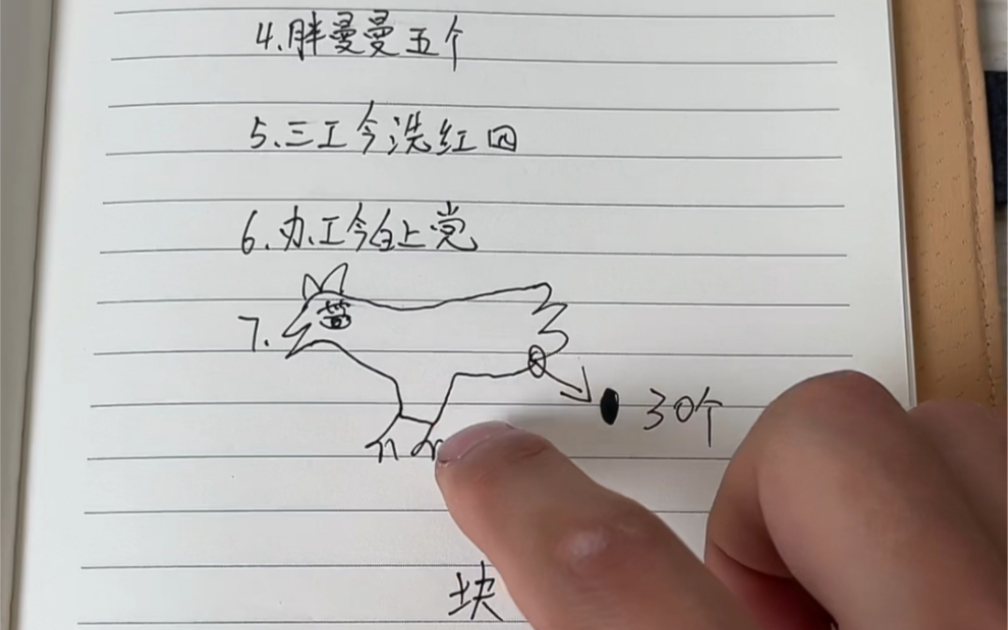 4.胖曼曼五个
5.三工今洗红四
6.办工今白上党
7.
30个
块